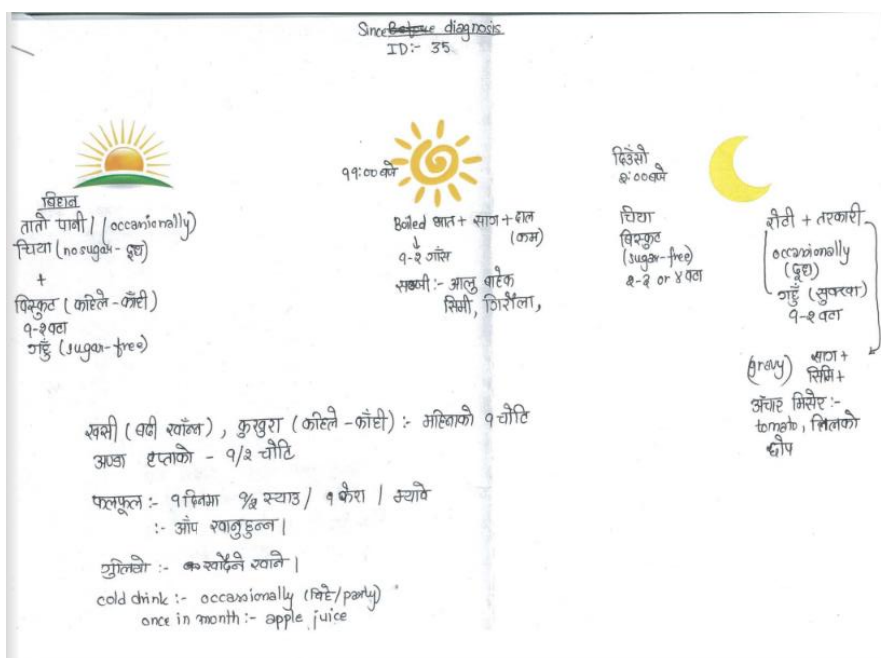 Since ~~Before~~ diagnosis
ID:- 35
बिहान
तातो पानी | (occanionally)
चिया (no sugar - दूध)
+
बिस्कुट (कहिले - काँही)
१-२ वटा
गहुँ (sugar-free)
११:०० बजे
Boiled भात + साग + दाल
(कम)
↓
१-२ गाँस
सब्जी :- आलु बाहेक
सिमी, घिरौला,
दिउँसो
२:०० बजे
चिया
बिस्कुट
(sugar-free)
२-३ or ४ वटा
रोटी + तरकारी
occasionally
(दूध)
गहुँ (सुक्खा)
१-२ वटा
(gravy) साग +
सिमि +
अँचार मिसेर :-
tomato, तिलको
छोप
खसी (बढी खाँन्न), कुखुरा (कहिले - काँही) :- महिनाको १ चोटि
अण्डा हप्ताको - १/२ चोटि
फलफूल :- १ दिनमा १/२ स्याउ / १ केरा / म्यावे
:- आँप खानुहुन्न |
गुलियो :- खाँदैनै खाने |
cold drink :- occassionally (बिहे/party)
once in month :- apple juice